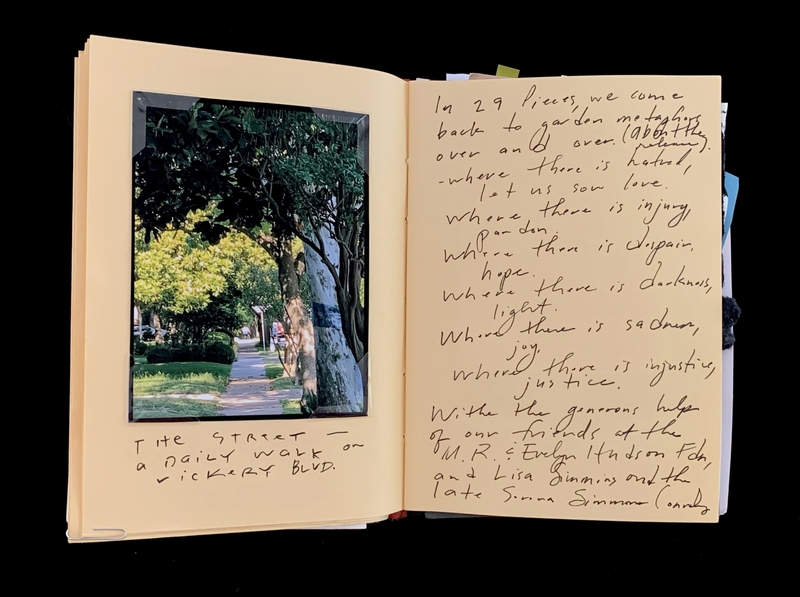 THE STREET —
a DAILY WALK on
VICKERY BLVD.
In 29 Pieces, we come
back to garden metaphors
over and over. (about the
release).
-where there is hatred,
let us sow love.
where there is injury,
pardon.
where there is despair,
hope.
where there is darkness,
light.
Where there is sadness,
joy.
where there is injustice,
justice.
Withe the generous help
of our friends at the
M.R. & Evelyn Hudson Fdn,
and Lisa Simmons and the
late Serena Simmons Connelly